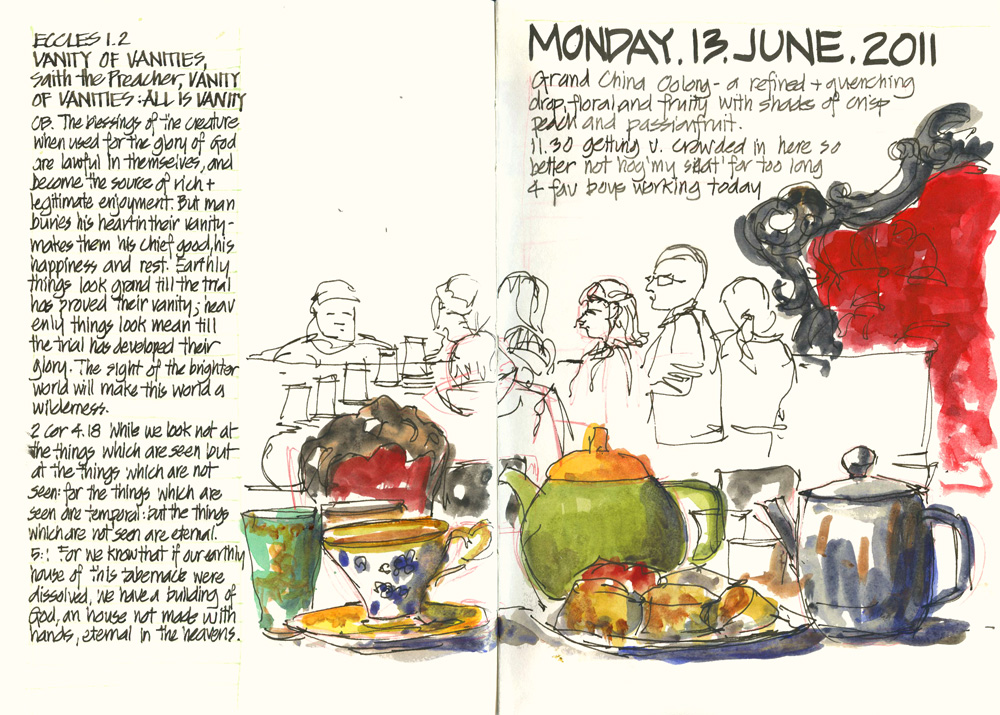 ECCLES 1.2
VANITY OF VANITIES,
saith the Preacher, VANITY
OF VANITIES: ALL IS VANITY
CB. The blessings of the creature
when used for the glory of God
are lawful in themselves, and
become the source of rich +
legitimate enjoyment. But man
buries his heart in their vanity-
makes them his chief good, his
happiness and rest. Earthly
things look grand till the trial
has proved their vanity; heav
enly things look mean till
the trial has developed their
glory. The sight of the brighter
world will make this world a
wilderness.
2 Cor 4.18 While we look not at
the things which are seen but
at the things which are not
seen: for the things which are
seen are temporal: but the things
which are not seen are eternal.
5:1 For we know that if our earthly
house of this tabernacle were
dissolved, we have a building of
God, an house not made with
hands, eternal in the heavens.
MONDAY. 13. JUNE. 2011
Grand China Oolong - a refined + quenching
drop, floral and fruity with shades of crisp
peach and passionfruit.
11.30 getting v. crowded in here so
better not 'hog' my seat' for too long
4 fav boys working today